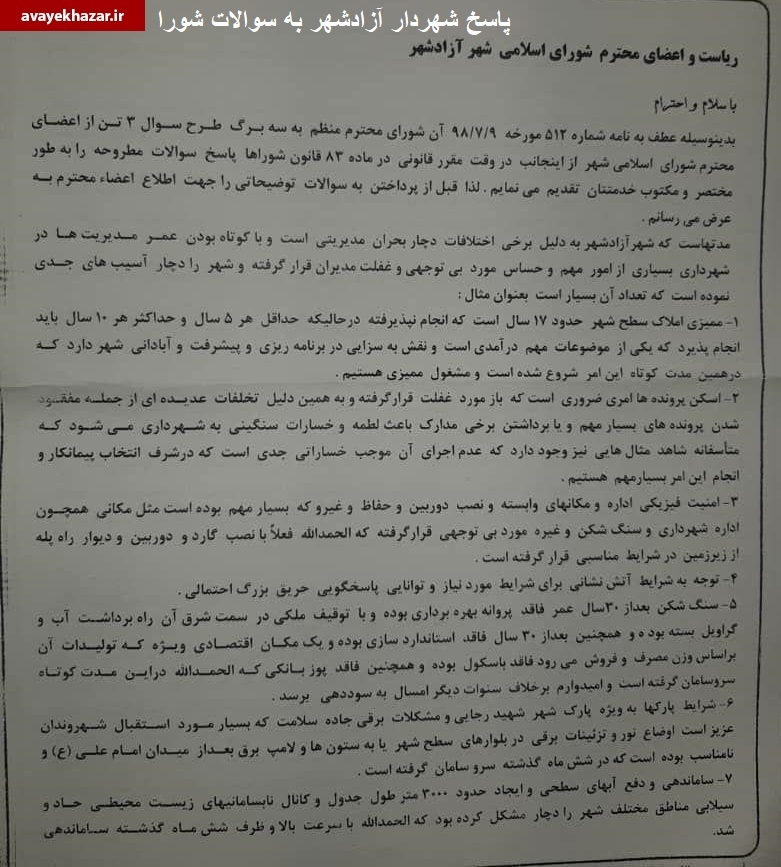 avayekhazar.ir
پاسخ شهردار آزادشهر به سوالات شورا
ریاست و اعضای محترم شورای اسلامی شهر آزادشهر
با سلام و احترام
بدینوسیله عطف به نامه شماره ۵۱۲ مورخه ۹۸/۷/۹ آن شورای محترم منظم به سه برگ طرح سوال ۳ تن از اعضای
محترم شورای اسلامی شهر از اینجانب در وقت مقرر قانونی در ماده ۸۳ قانون شوراها پاسخ سوالات مطروحه را به طور
مختصر و مکتوب خدمتتان تقدیم می نمایم . لذا قبل از پرداختن به سوالات توضیحاتی را جهت اطلاع اعضاء محترم به
عرض می رسانم .
مدتهاست که شهر آزادشهر به دلیل برخی اختلافات دچار بحران مدیریتی است و با کوتاه بودن عمر مدیریت ها در
شهرداری بسیاری از امور مهم و حساس مورد بی توجهی و غفلت مدیران قرار گرفته و شهر را دچار آسیب های جدی
نموده است که تعداد آن بسیار است بعنوان مثال :
۱- ممیزی املاک سطح شهر حدود ۱۷ سال است که انجام نپذیرفته درحالیکه حداقل هر ۵ سال و حداکثر هر ۱۰ سال باید
انجام پذیرد که یکی از موضوعات مهم درآمدی است و نقش به سزایی در برنامه ریزی و پیشرفت و آبادانی شهر دارد که
درهمین مدت کوتاه این امر شروع شده است و مشغول ممیزی هستیم .
۲- اسکن پرونده ها امری ضروری است که باز مورد غفلت قرارگرفته و به همین دلیل تخلفات عدیده ای از جمله مفقود
شدن پرونده های بسیار مهم و یا برداشتن برخی مدارک باعث لطمه و خسارات سنگینی به شهرداری می شود که
متأسفانه شاهد مثال هایی نیز وجود دارد که عدم اجرای آن موجب خساراتی جدی است که درشرف انتخاب پیمانکار و
انجام این امر بسیارمهم هستیم .
۳- امنیت فیزیکی اداره و مکانهای وابسته و نصب دوربین و حفاظ و غیرو که بسیار مهم بوده است مثل مکانی همچون
اداره شهرداری و سنگ شکن و غیره مورد بی توجهی قرارگرفته که الحمدالله فعلاً با نصب گارد و دوربین و دیوار راه پله
از زیرزمین در شرایط مناسبی قرار گرفته است .
۴- توجه به شرایط آتش نشانی برای شرایط مورد نیاز و توانایی پاسخگویی حریق بزرگ احتمالی .
۵- سنگ شکن بعداز ۳۰سال عمر فاقد پروانه بهره برداری بوده و با توقیف ملکی در سمت شرق آن راه برداشت آب و
گراویل بسته بوده و همچنین بعداز ۳۰ سال فاقد استاندارد سازی بوده و یک مکان اقتصادی ویژه که تولیدات آن
براساس وزن مصرف و فروش می رود فاقد باسکول بوده و همچنین فاقد پوز بانکی که الحمدالله دراین مدت کوتاه
سروسامان گرفته است و امیدوارم برخلاف سنوات دیگر امسال به سوددهی برسد .
۶- شرایط پارکها به ویژه پارک شهر شهید رجایی و مشکلات برقی جاده سلامت که بسیار مورد استقبال شهروندان
عزیز است اوضاع نور و تزئینات برقی در بلوارهای سطح شهر یا به ستون ها و لامپ برق بعداز میدان امام علی (ع) و
نامناسب بوده است که در شش ماه گذشته سرو سامان گرفته است .
۷- ساماندهی و دفع آبهای سطحی و ایجاد حدود ۳۰۰۰ متر طول جدول و کانال نابسامانیهای زیست محیطی حاد و
سیلابی مناطق مختلف شهر را دچار مشکل کرده بود که الحمدالله با سرعت بالا و ظرف شش ماه گذشته ساماندهی
شد.